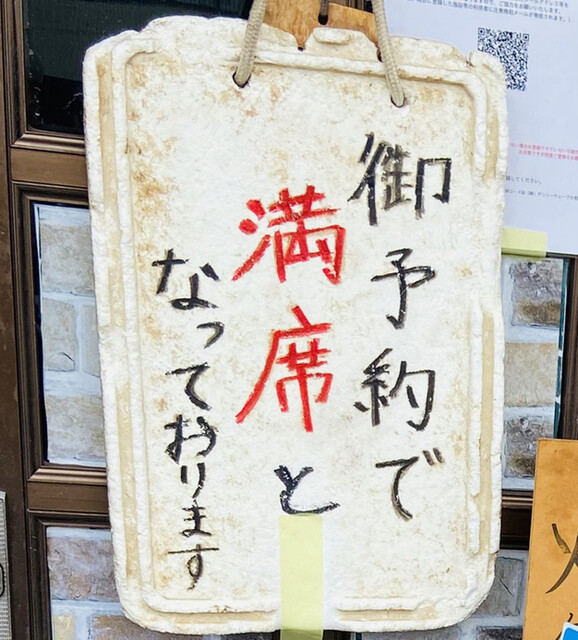 御予約で
満席と
なっております